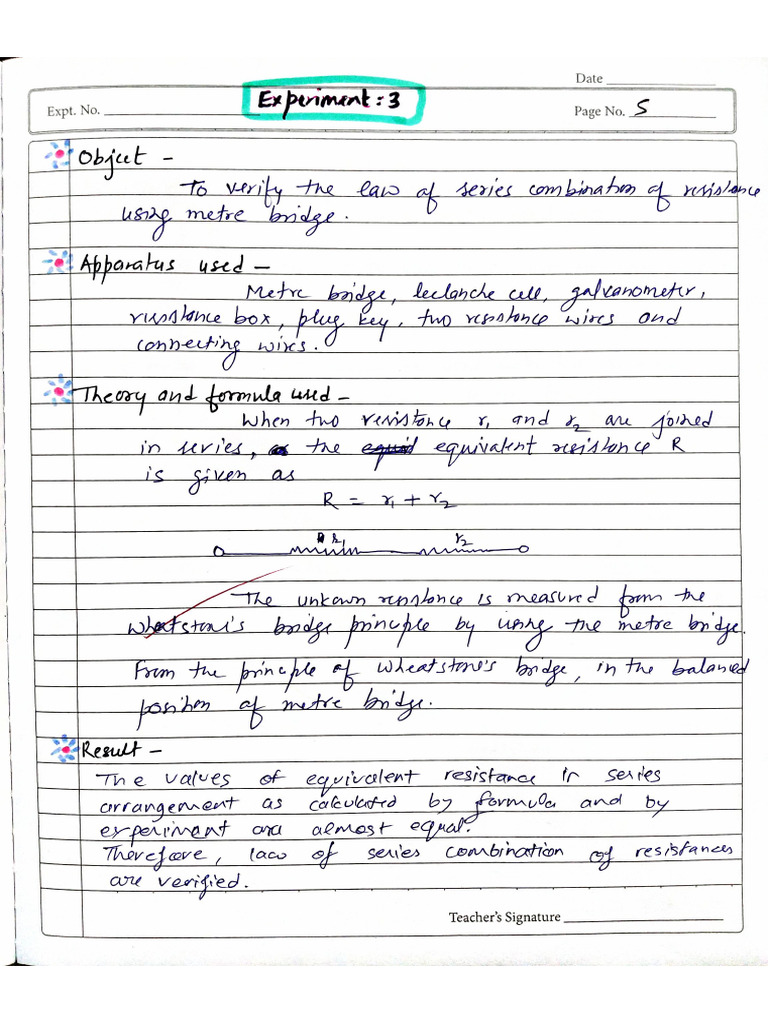 Date
Expt. No.
Experiment: 3
Page No. 5
Object -
To verify the law of series combination of resistance
using metre bridge.
Apparatus used -
Metre bridge, leclanche cell, galvanometer,
resistance box, plug key, two resistance wires and
connecting wires.
Theory and formula used -
When two resistance r1 and r2 are joined
in series, the equivalent resistance R
is given as
R = r1 + r2
r2
The unkown resistance is measured from the
Wheatstone's bridge principle by using the metre bridge.
From the principle of wheatstone's bridge, in the balanced
position of metre bridge.
Result -
The values of equivalent resistance in series
arrangement as calculated by formula and by
experiment are almost equal.
Therefore, law of series combination of resistances
are verified.
Teacher's Signature